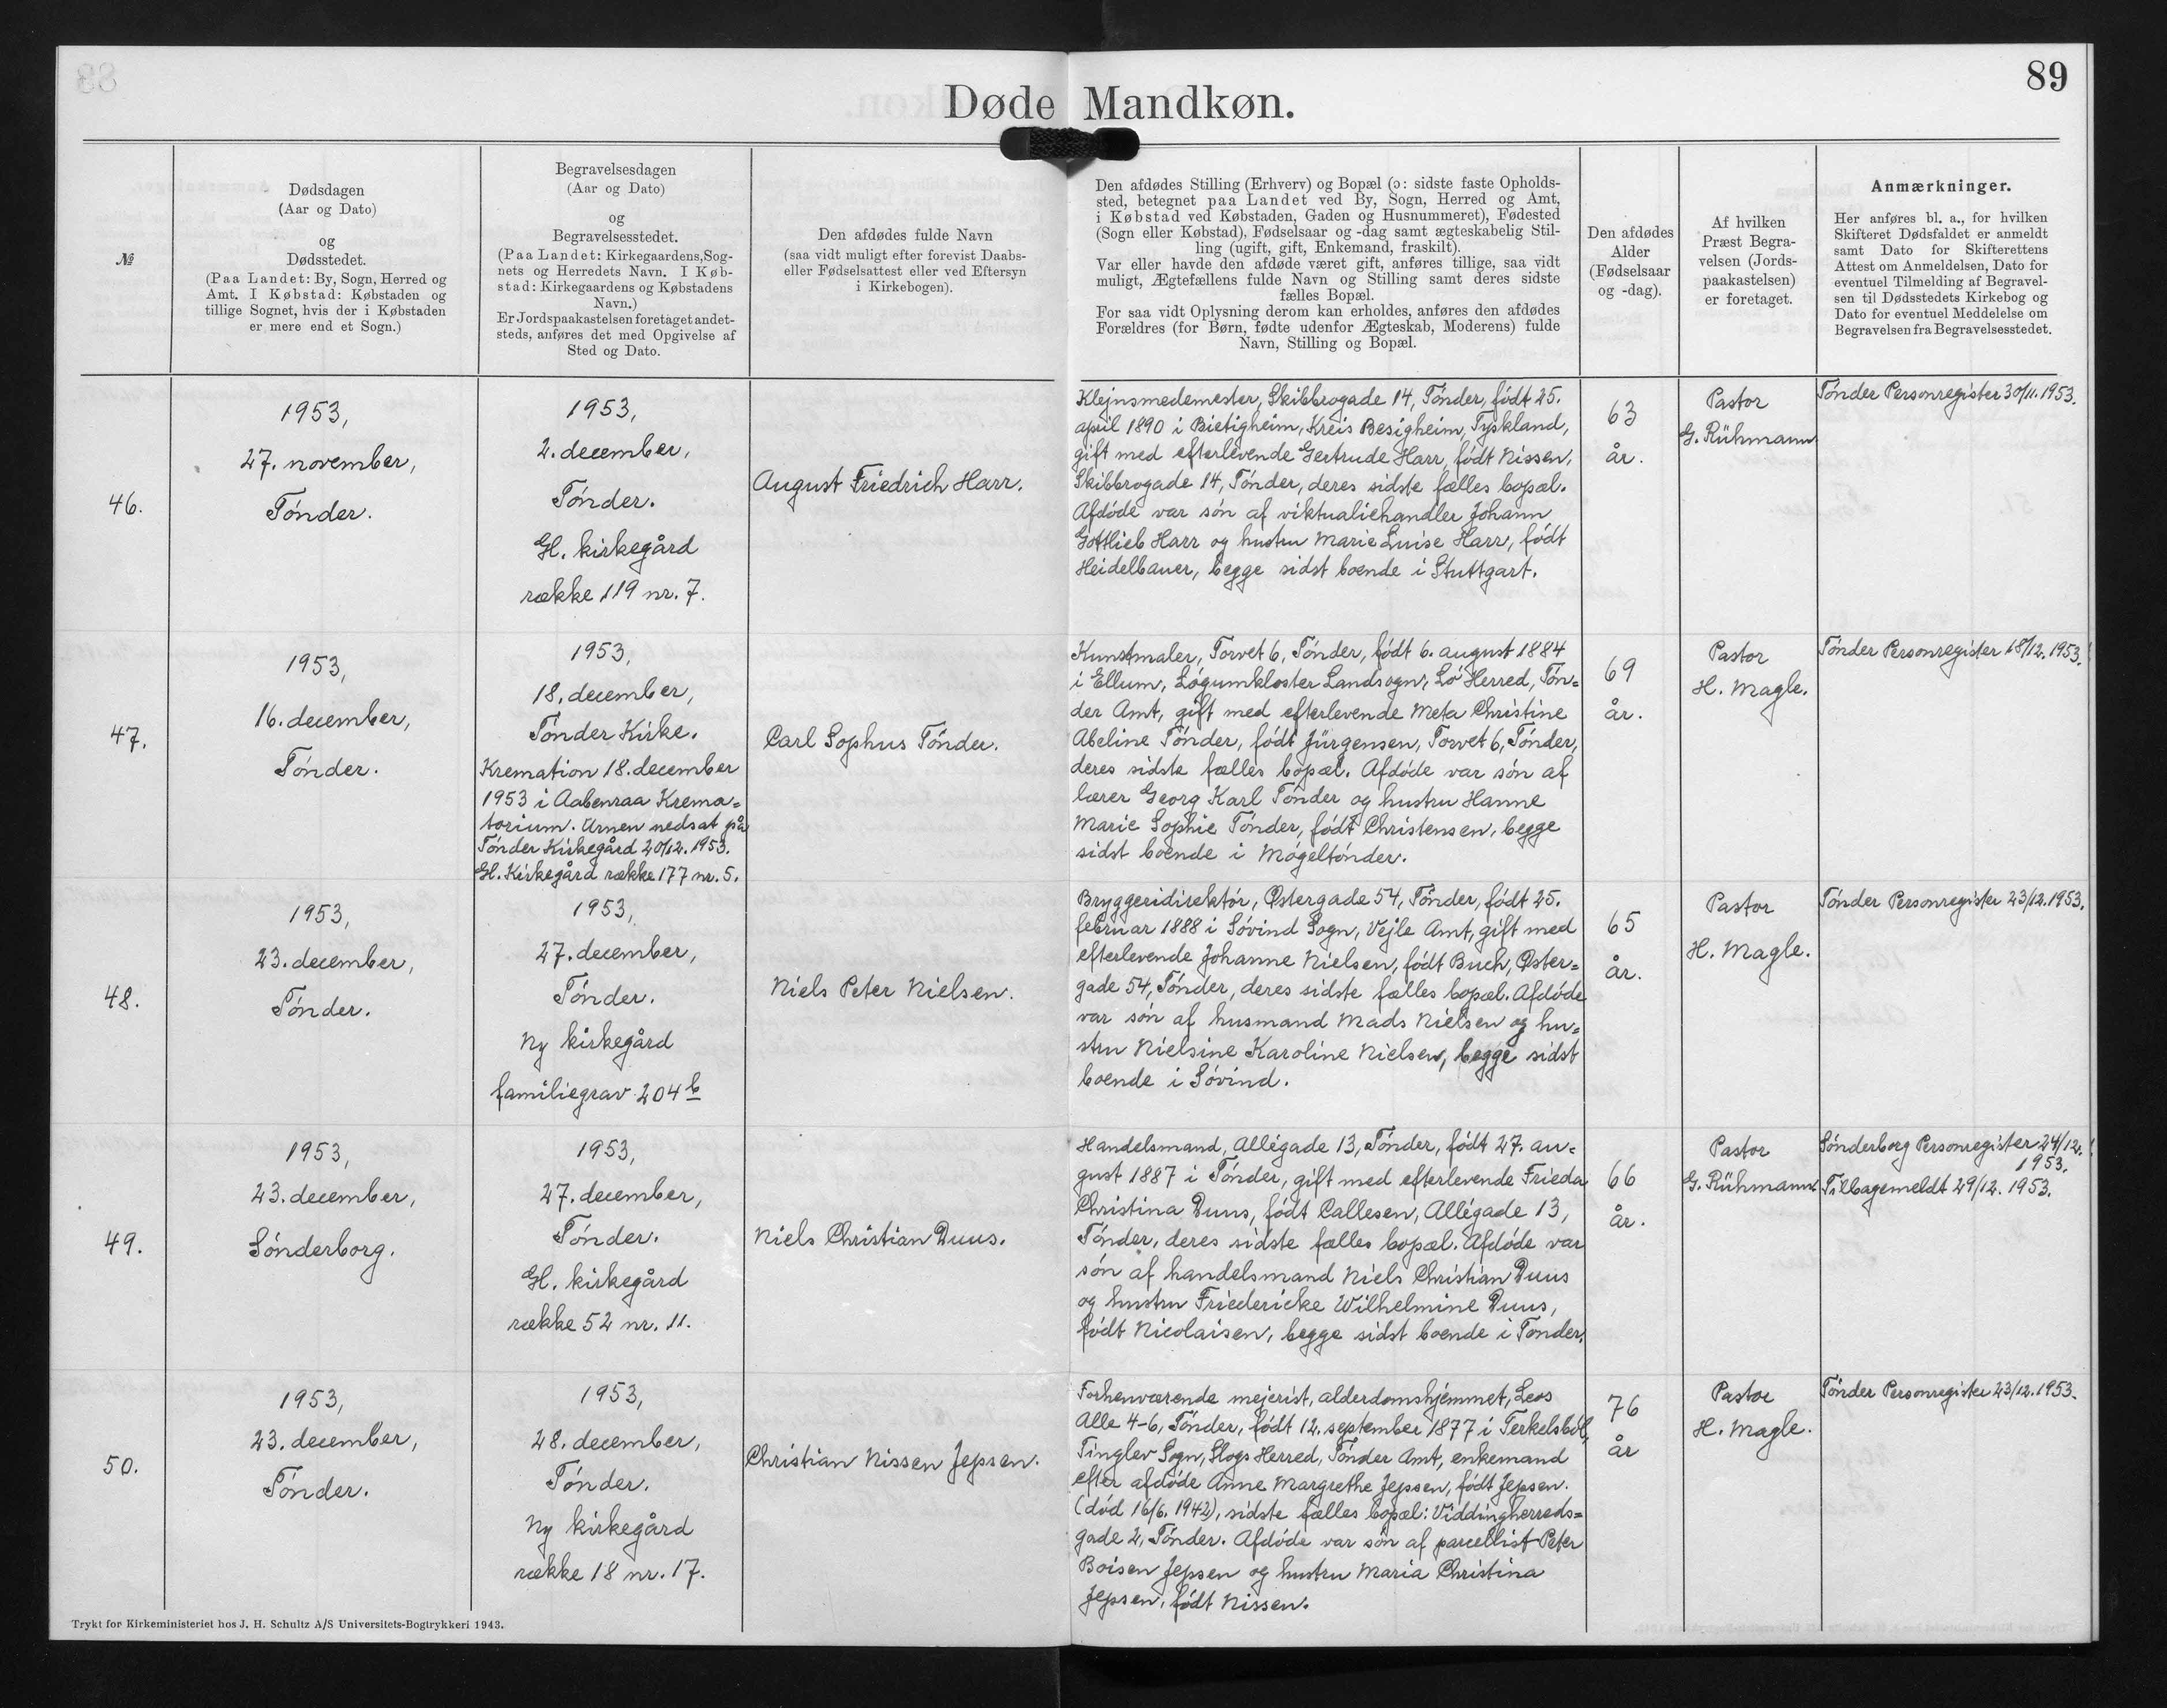 89
Døde Mandkøn.
№
Dødsdagen
(Aar og Dato)
og
Dødsstedet.
(Paa Landet: By, Sogn, Herred og
Amt. I Købstad: Købstaden og
tillige Sognet, hvis der i Købstaden
er mere end et Sogn.)
Begravelsesdagen
(Aar og Dato)
og
Begravelsesstedet.
(Paa Landet: Kirkegaardens, Sog-
nets og Herredets Navn. I Køb-
stad: Kirkegaardens og Købstadens
Navn.)
Er Jordspaakastelsen foretaget andet-
steds, anføres det med Opgivelse af
Sted og Dato.
Den afdødes fulde Navn
(saa vidt muligt efter forevist Daabs-
eller Fødselsattest eller ved Eftersyn
i Kirkebogen).
Den afdødes Stilling (Erhverv) og Bopæl (ɔ: sidste faste Opholds-
sted, betegnet paa Landet ved By, Sogn, Herred og Amt,
i Købstad ved Købstaden, Gaden og Husnummeret), Fødested
(Sogn eller Købstad), Fødselsaar og -dag samt ægteskabelig Stil-
ling (ugift, gift, Enkemand, fraskilt).
Var eller havde den afdøde været gift, anføres tillige, saa vidt
muligt, Ægtefællens fulde Navn og Stilling samt deres sidste
fælles Bopæl.
For saa vidt Oplysning derom kan erholdes, anføres den afdødes
Forældres (for Børn, fødte udenfor Ægteskab, Moderens) fulde
Navn, Stilling og Bopæl.
Den afdødes
Alder
(Fødselsaar
og -dag).
Af hvilken
Præst Begra-
velsen (Jords-
paakastelsen)
er foretaget.
Anmærkninger.
Her anføres bl. a., for hvilken
Skifteret Dødsfaldet er anmeldt
samt Dato for Skifterettens
Attest om Anmeldelsen, Dato for
eventuel Tilmelding af Begravel-
sen til Dødsstedets Kirkebog og
Dato for eventuel Meddelelse om
Begravelsen fra Begravelsesstedet.
46.
1953,
27. november,
Tønder.
1953,
2. december,
Tønder.
Gl. kirkegård
række 119 nr. 7.
August Friedrich Harr.
Klejnsmedemester, Skibbrogade 14, Tønder, født 25.
april 1890 i Bietigheim, Kreis Besigheim, Tyskland,
gift med efterlevende Gertrude Harr, født Nissen,
Skibbrogade 14, Tønder, deres sidste fælles bopæl.
Afdøde var søn af viktualiehandler Johann
Gottlieb Harr og hustru Marie Luise Harr, født
Heidelbauer, begge sidst boende i Stuttgart.
63
år.
Pastor
G. Rühmann
Tønder Personregister 30/11. 1953.
47.
1953,
16. december,
Tønder.
1953,
18. december,
Tønder Kirke.
Kremation 18. december
1953 i Aabenraa Krema=
torium. Urnen nedsat på
Tønder Kirkegård 20/12. 1953.
Gl. Kirkegård række 177 nr. 5.
Carl Sophus Tønder.
Kunstmaler, Torvet 6, Tønder, født 6. august 1884
i Ellum, Løgumkloster Landsogn, Lø Herred, Tøn=
der Amt, gift med efterlevende Meta Christine
Abeline Tønder, født Jürgensen, Torvet 6, Tønder,
deres sidste fælles bopæl. Afdøde var søn af
lærer Georg Karl Tønder og hustru Hanne
Marie Sophie Tønder, født Christensen, begge
sidst boende i Møgeltønder.
69
år.
Pastor
H. Magle.
Tønder Personregister 18/12. 1953.
48.
1953,
23. december,
Tønder.
1953,
27. december,
Tønder.
Ny kirkegård
familiegrav 204 b
Niels Peter Nielsen.
Bryggeridirektør, Østergade 54, Tønder, født 25.
februar 1888 i Søvind Sogn, Vejle Amt, gift med
efterlevende Johanne Nielsen, født Buch, Øster=
gade 54, Tønder, deres sidste fælles bopæl. Afdøde
var søn af husmand Mads Nielsen og hu=
stru Nielsine Karoline Nielsen, begge sidst
boende i Søvind.
65
år.
Pastor
H. Magle.
Tønder Personregister 23/12. 1953.
49.
1953,
23. december,
Sønderborg.
1953,
27. december,
Tønder.
Gl. kirkegård
række 52 nr. 11.
Niels Christian Duus.
Handelsmand, Allégade 13, Tønder, født 27. au=
gust 1887 i Tønder, gift med efterlevende Frieda
Christina Duus, født Callesen, Allégade 13,
Tønder, deres sidste fælles bopæl. Afdøde var
søn af handelsmand Niels Christian Duus
og hustru Friedericke Wilhelmine Duus,
født Nicolaisen, begge sidst boende i Tønder.
66
år.
Pastor
G. Rühmann.
Sønderborg Personregister 24/12.
1953.
Tilbagemeldt 29/12. 1953.
50.
1953,
23. december,
Tønder.
1953,
28. december,
Tønder.
Ny kirkegård
række 18 nr. 17.
Christian Nissen Jepsen.
Forhenværende mejerist, alderdomshjemmet, Leos
Alle 4-6, Tønder, født 12. september 1877 i Terkelsbøl,
Tinglev Sogn, Slogs Herred, Tønder Amt, enkemand
efter afdøde Anne Margrethe Jepsen, født Jepsen.
(død 16/6. 1942), sidste fælles bopæl: Viddingherreds=
gade 2, Tønder. Afdøde var søn af parcellist Peter
Boisen Jepsen og hustru Maria Christina
Jepsen, født Nissen.
76
år
Pastor
H. Magle.
Tønder Personregister 23/12. 1953.
Trykt for Kirkeministeriet hos J. H. Schultz A/S Universitets-Bogtrykkeri 1943.